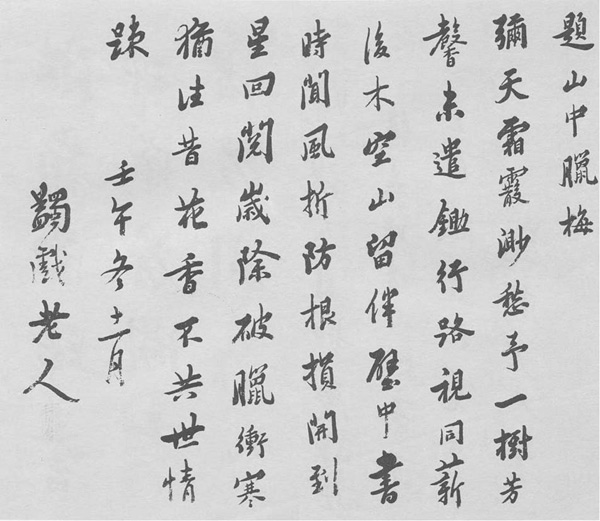 題山中臘梅
彌天霜霰渺愁予一樹芳
馨未遣鋤行路視同薪
後木空山留伴壁中書
時聞風折防根損開到
星回閱歲除破臘衝寒
猶往昔花香不共世情
疎
壬午冬十一月
蠲戲老人